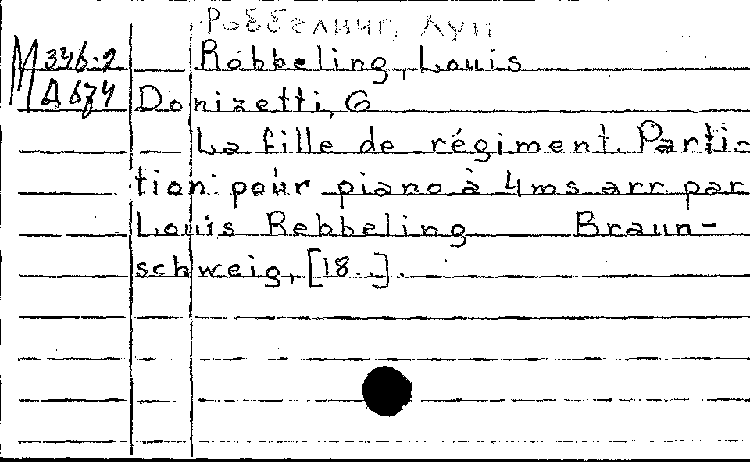 Роббелинг, Луи
М 336.2 Robbeling, Louis
Д 674 Donizetti, G
La fille de régiment. Parti-
tion pour piano à 4ms arr par
Louis Rebbeling Braun-
schweig, [18..].